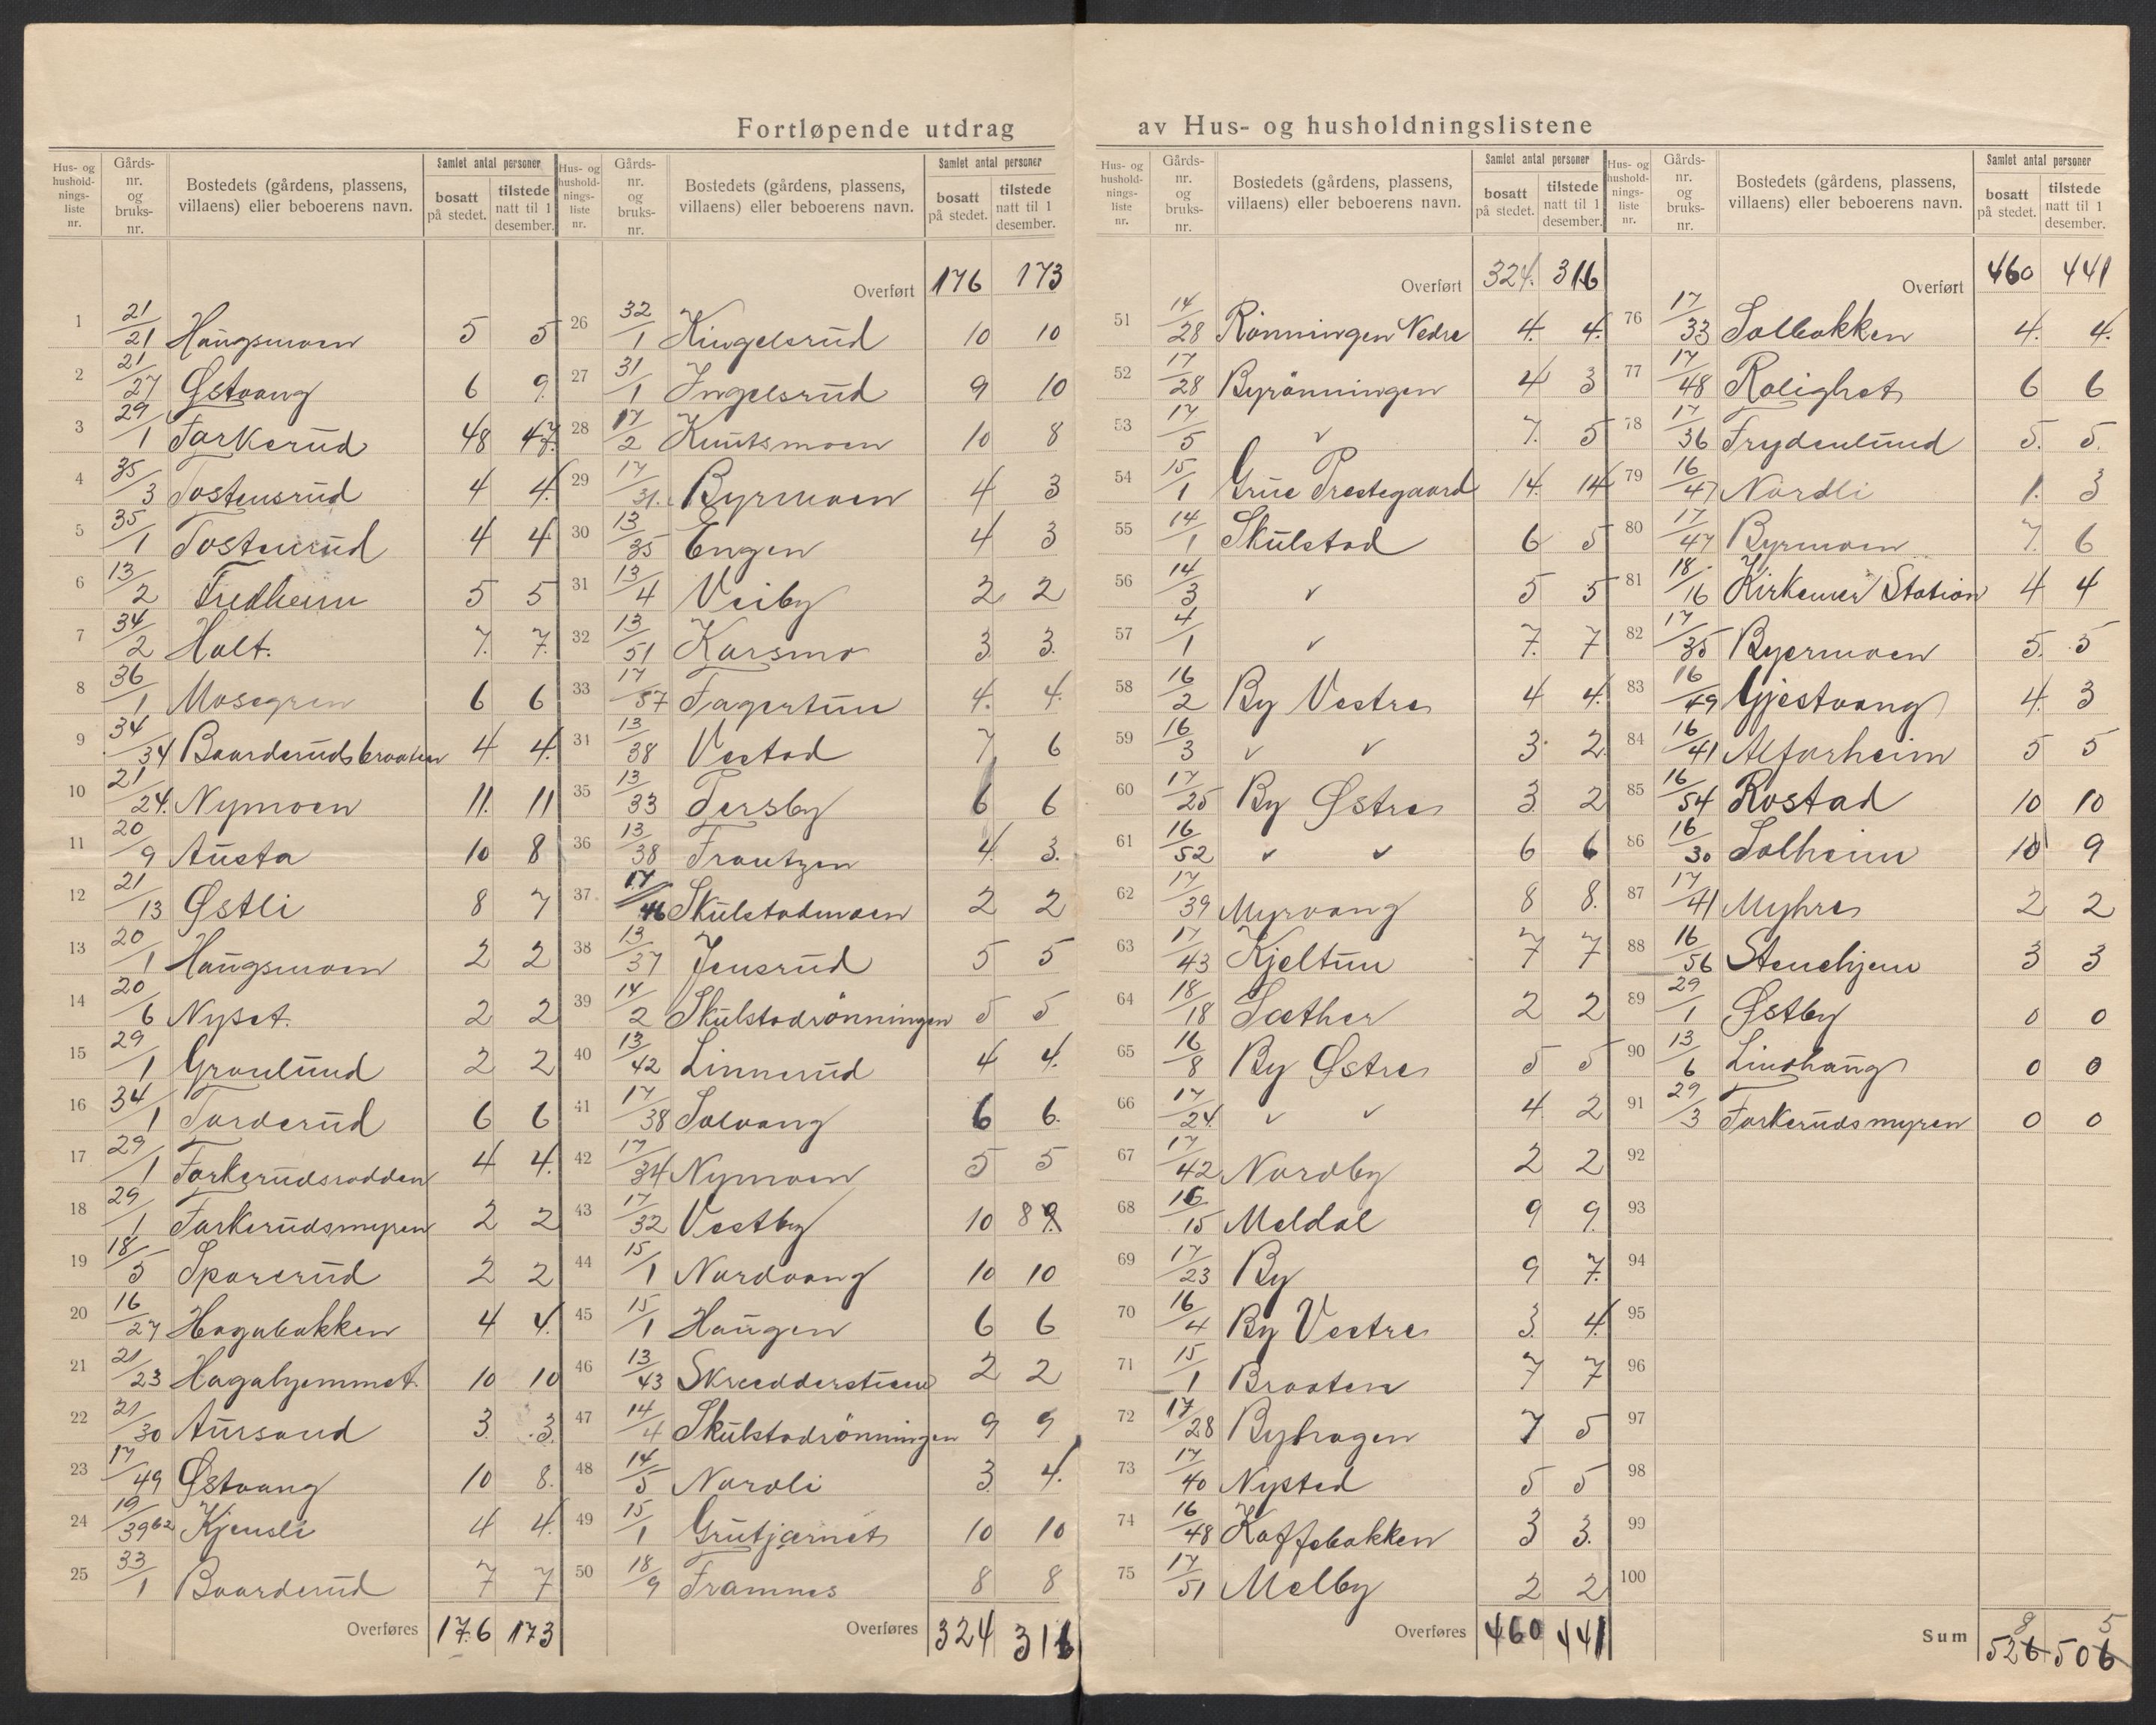 Fortløpende utdrag av Hus- og husholdningslistene
Hus- og husholdningsliste nr. | Gårds-nr. og bruks-nr. | Bostedets (gårdens, plassens, villaens) eller beboerens navn. | Samlet antal personer | bosatt på stedet. | tilstede natt til 1 desember.
1 21/21 Haugsmoen 5 5
2 21/27 Østvang 6 9
3 29/1 Tarkerud 48 47
4 35/3 Tostensrud 4 4
5 35/1 Tostensrud 4 4
6 13/2 Fredheim 5 5
7 34/2 Holt. 7. 7.
8 36/1 Mosegren 6 6
9 34/34 Baarderudsbraaten 4 4
10 21/24. Nymoen 11. 11
11 20/9 Austa 10 8
12 21/13 Østli 8 7
13 20/1 Haugsmoen 2 2
14 20/6 Nyset. 2 2
15 29/1 Granlund 2 2
16 34/1 Torderud 6 6
17 29/1 Tarkerudsrodden 4 4.
18 29/1 Tarkerudsmyren 2 2
19 18/5 Sparerud 2 2
20 16/27 Hagabakken 4 4.
21 21/23 Hagahjemmet. 10 10
22 21/30 Aursand 3. 3.
23 17/49 Østvang 10 8.
24 19/39 62 Kjensli 4 4.
25 33/1 Baarderud 7 7
Overføres 176 173
Overført 176 173
26 32/1 Kingelsrud 10 10
27 31/1 Ingelsrud 9 10
28 17/2 Knutsmoen 10 8
29 17/31. Byrmoen 4 3
30 13/35 Engen 4 3
31 13/4 Veiby 2 2
32 13/51 Karsmo 3 3.
33 17/57 Fagertun 4. 4.
34 13/38 Vestad 7 6
35 13/33 Tersby 6 6
36 13/38 Frantzen 4. 3.
37 17/46 Skulstadmoen 2 2
38 13/37 Jensrud 5 5
39 14/2 Skulstadrönningen 5 5
40 13/42 Linnerud 4 4.
41 17/38 Solvang 6 6.
42 17/34 Nymoen 5 5
43 17/32 Vestby 10 8 9
44 15/1 Nordvang 10 10
45 15/1 Haugen 6 6
46 13/43 Skredderstuen 2 2
47 14/4 Skulstadrönningen 9 9
48 14/5 Nordli 3 4.
49 15/1 Grutjærnet 10 10
50 18/9 Framnes 8 8
Overføres 324 316
Overført 324. 316
51 14/28 Rönningen Nedre 4. 4.
52 17/28 Byrönningen 4 3
53 17/5 " 7. 5
54 15/1 Grue Prestegaard 14. 14
55 14/1 Skulstad 6 5
56 14/3 " 5 5
57 4/1 " 7. 7
58 16/2 By Vestre 4 4.
59 16/3 " " 3. 2
60 17/25 By Østre 3. 2
61 16/52 " " 6 6
62 17/39 Myrvang 8 8.
63 17/43 Kjeltun 7 7
64 18/18 Sæther 2 2
65 16/8 By Østre 5 5
66 17/24. " " 4 2
67 17/42 Nordby 2 2
68 16/15 Meldal 9 9.
69 17/23 By 9 7.
70 16/4 By Vestre 3. 4.
71 15/1 Braaten 7 7
72 17/28 Byhagen 7 5
73 17/40 Nysted 5 5
74 16/48 Kaffebakken 3 3.
75 17/51 Melby 2 2
Overføres 460 441
Overført 460 441
76 17/33 Solbakken 4. 4.
77 17/48 Rolighet 6 6
78 17/36 Frydenlund 5. 5.
79 16/47 Nordli 1. 3
80 17/47 Byrmoen 7. 6
81 18/16 Kirkenær Station 4 4
82 17/35 Byermoen 5. 5
83 16/49 Gjestvang 4. 3
84 16/41 Alfarheim 5 5
85 16/54 Rostad 10 10
86 16/30 Solheim 10 9
87 17/41 Myhre 2 2
88 16/56 Stenehjem 3 3
89 29/1 Østby 0 0
90 13/6 Lindhaug 0 0
91 29/3 Tarkerudsmyren 0 0
92
93
94
95
96
97
98
99
100
9 5
Sum 526 506